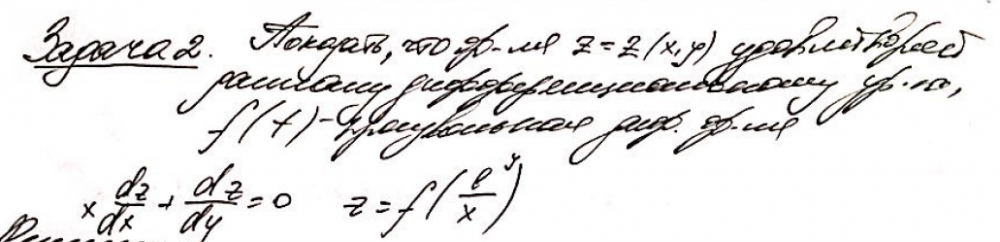 Задача 2. Показать, что ф-ия z = z(x,y) удовлетворяет
данному дифференциальному ур-ю,
f(t) - произвольная диф. ф-ия
x dz/dx + dz/dy = 0 z = f(e^y/x)